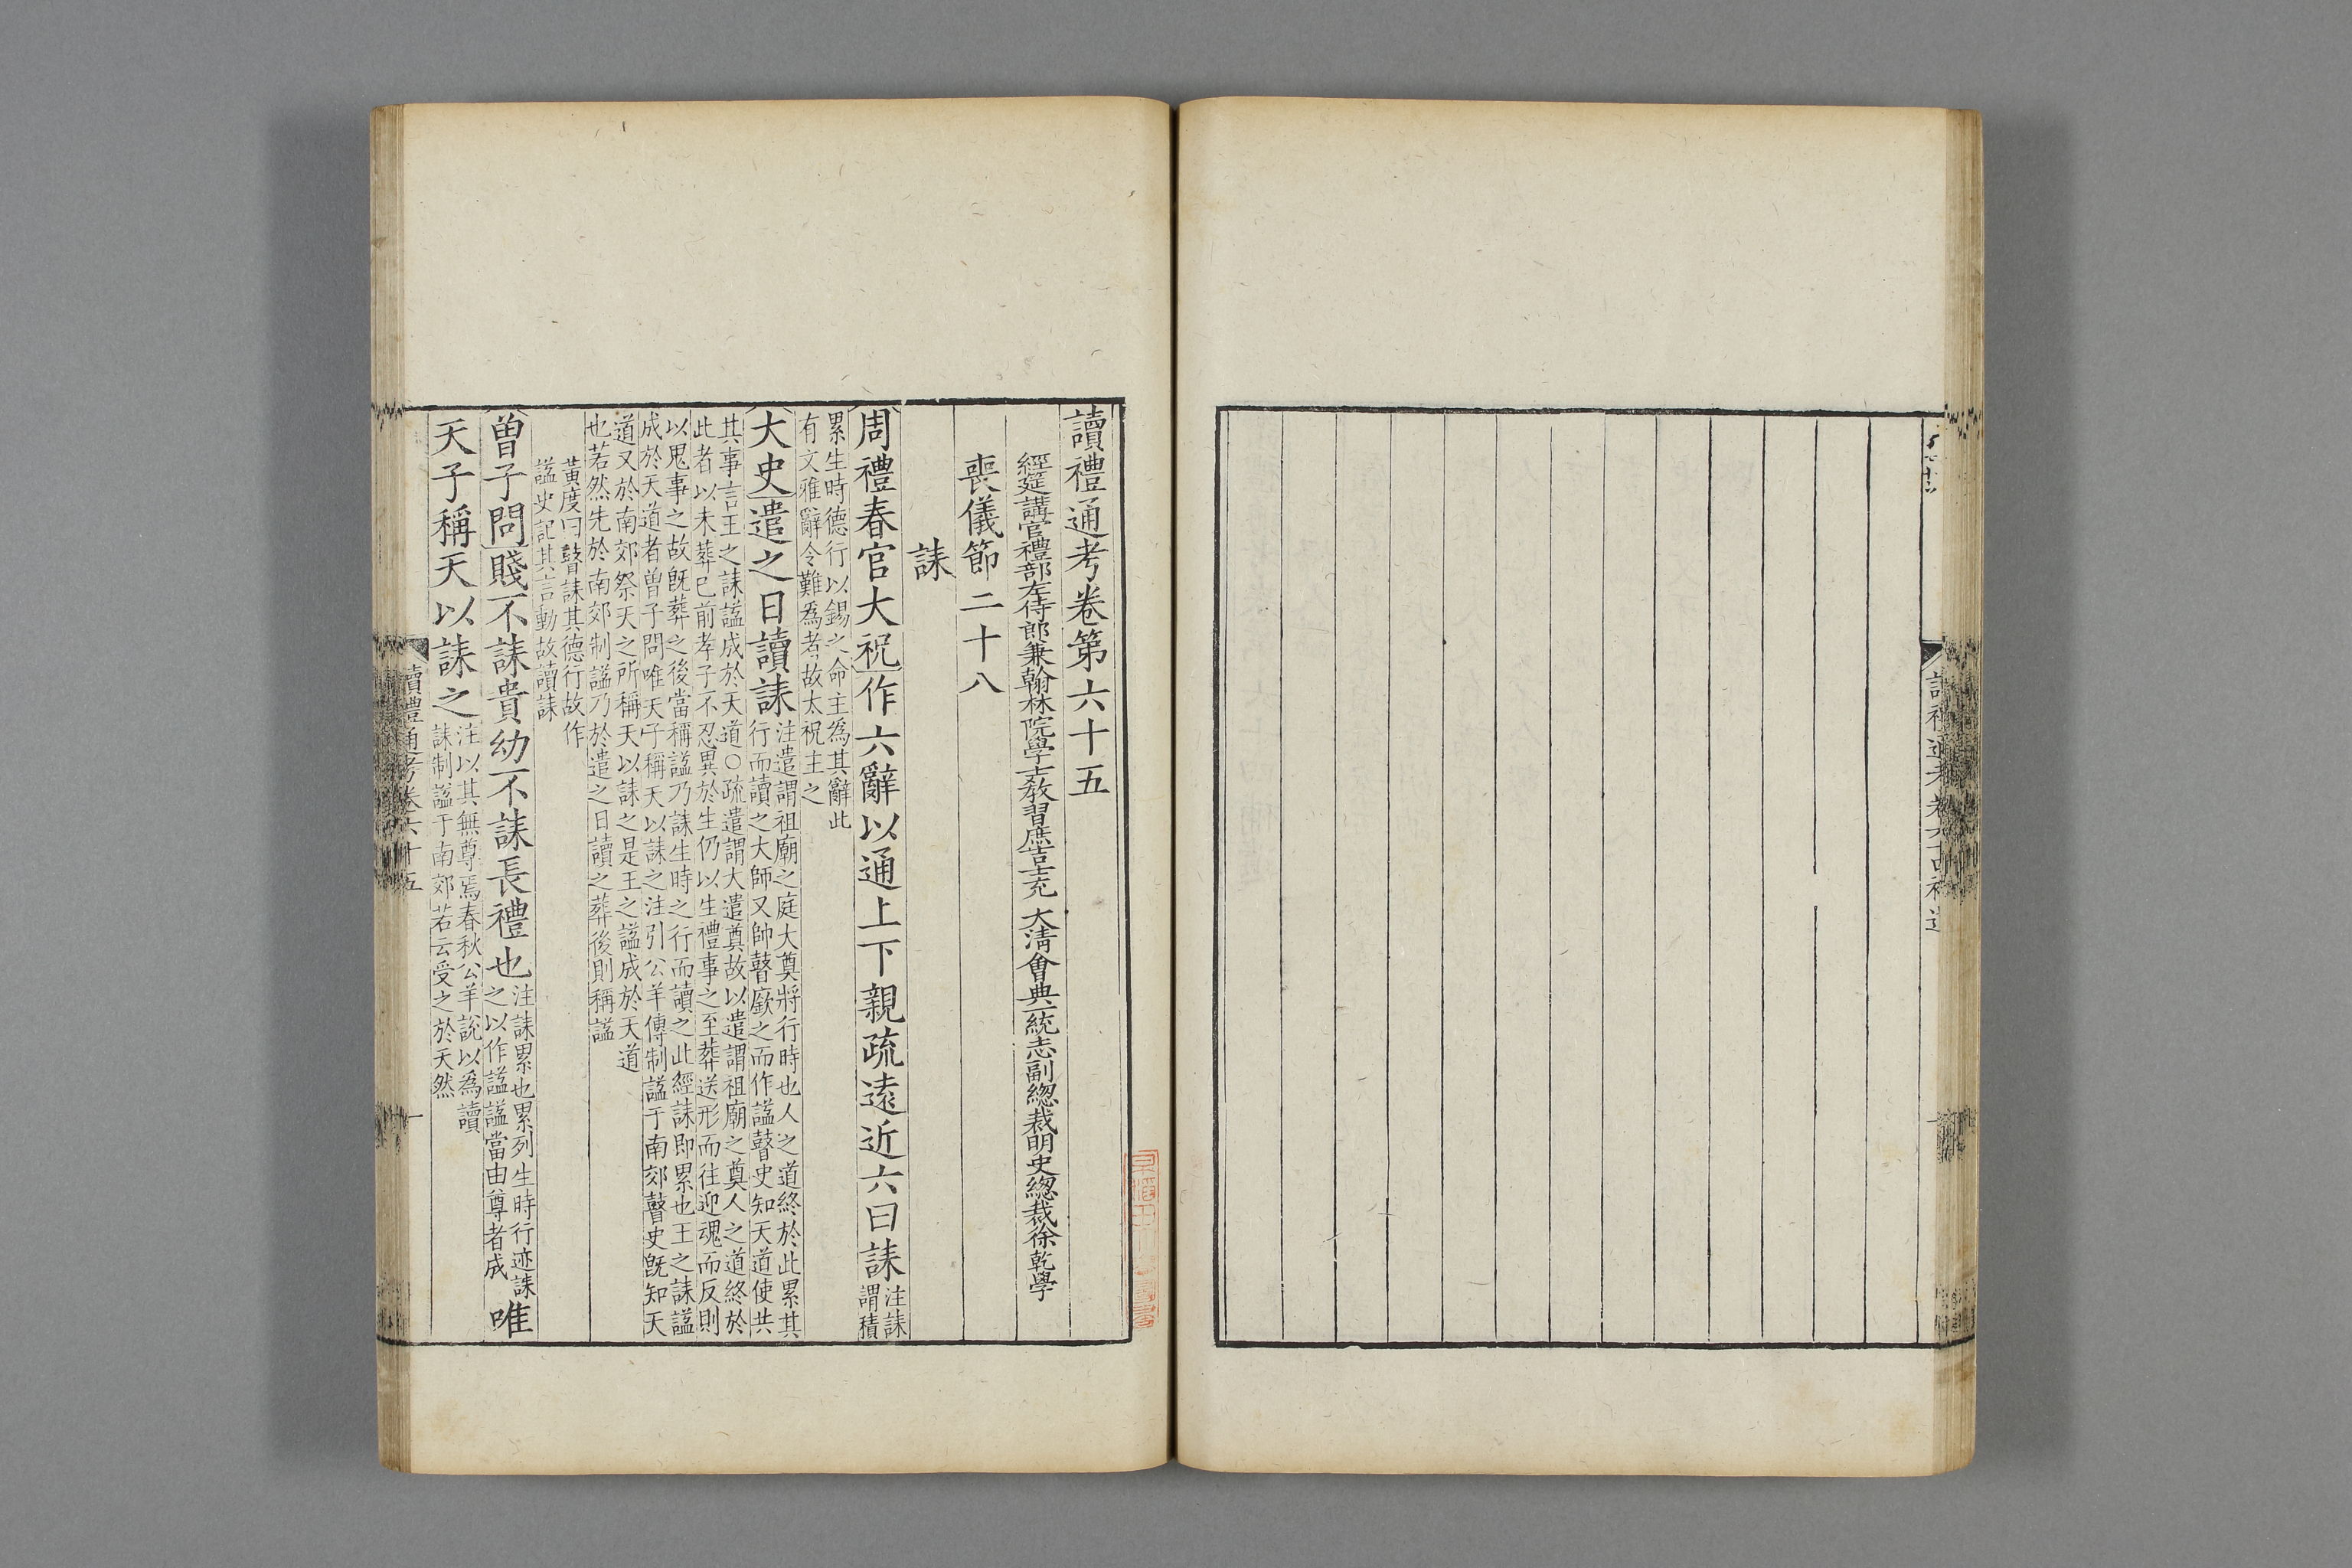 讀禮通考卷第六十五
經筵講官禮部左侍郎兼翰林院學士教習庶吉士充 大清會典一統志副總裁明史總裁徐乾學
喪儀節二十八
誄
周禮春官大祝作六辭以通上下親疏遠近六曰誄注誄謂積
累生時德行以錫之命主爲其辭此
有文雅辭令難爲者故太祝主之
大史遣之日讀誄
注遣謂祖廟之庭大奠將行時也人之道終於此累其
行而讀之大師又帥瞽廞之而作諡瞽史知天道使共
其事言王之誄諡成於天道○疏遣謂大遣奠故以遣謂祖廟之奠人之道終於
此者以未葬已前孝子不忍異於生仍以生禮事之至葬送形而往迎魂而反則
以鬼事之故旣葬之後當稱諡乃誄生時之行而讀之此經誄即累也王之誄諡
成於天道者曽子問唯天子稱天以誄之注引公羊傳制諡于南郊瞽史旣知天
道又於南郊祭天之所稱天以誄之是王之諡成於天道
也若然先於南郊制諡乃於遣之日讀之葬後則稱諡
黃度曰瞽誄其德行故作
諡史記其言動故讀誄
曽子問賤不誄貴幼不誄長禮也
注誄累也累列生時行迹誄
之以作諡諡當由尊者成
唯
天子稱天以誄之
注以其無尊焉春秋公羊說以爲讀
誄制諡于南郊若云受之於天然
讀禮通考卷六十五
一